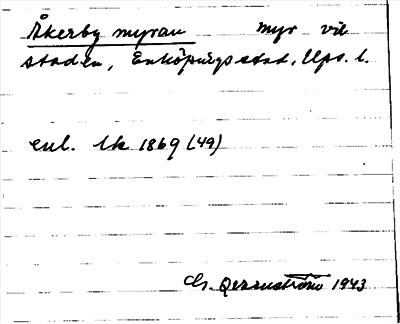 Åkerby myran myr vid
staden, Enköpings stad, Ups. l.
enl. lk 1869 (49)
1943